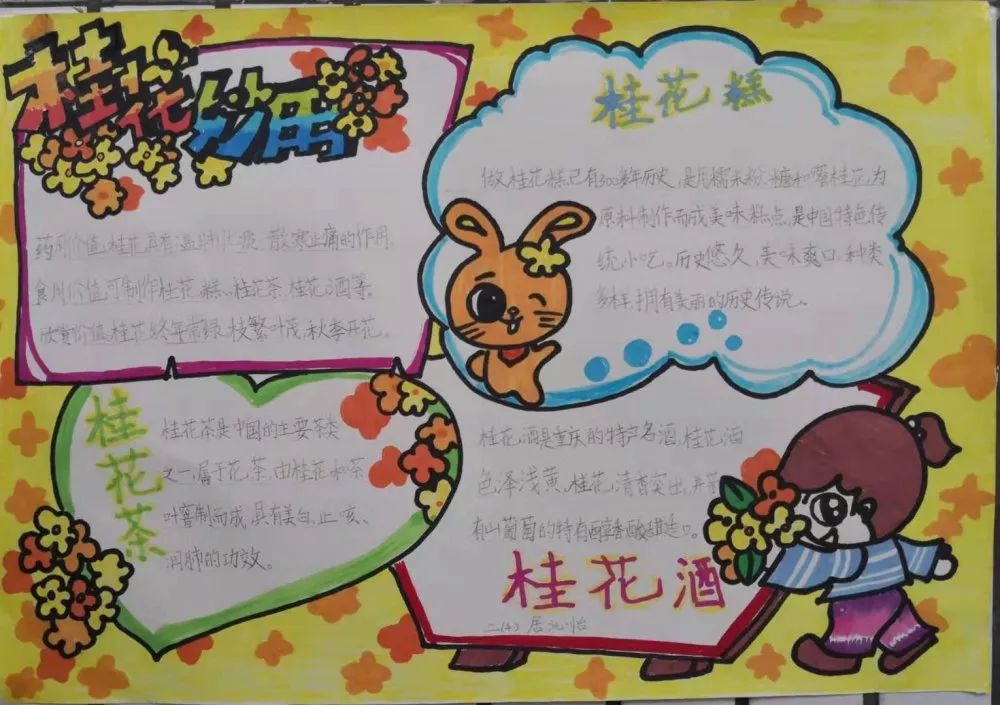 桂花妙用
药用价值:桂花具有温肺化痰 散寒止痛的作用。
食用价值:可制作桂花糕、桂花茶、桂花酒等。
欣赏价值:桂花终年常绿,枝繁叶茂,秋季开花。
桂花糕
做桂花糕已有300多年历史,是用糯米粉、糖和蜜桂花为
原料制作而成美味糕点,是中国特色传
统小吃。历史悠久,美味爽口,种类
多样,拥有美丽的历史传说。
桂花茶
桂花茶是中国的主要茶类
之一,属于花茶,由桂花和茶
叶窨制而成,具有美白、止咳、
润肺的功效。
桂花酒是重庆的特产名酒,桂花酒
色泽浅黄,桂花清香突出,并
有山葡萄的特有醇香,酸甜适口。
桂花酒
二(4) 居